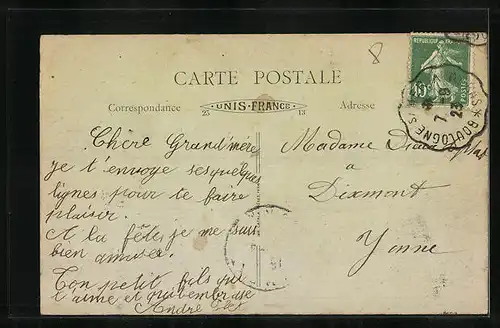 8
REPUBLIQUE FRANÇAISE
10
POSTES
CARTE POSTALE
Correspondance
UNIS-FRANCE
25
13
Adresse
BOULOGNE S
7 -8
23
Chère Grand'mère
je t'envoye ses quelques
lignes pour te faire
plaisir.
A la fête je me suis
bien amuser.
Ton petit fils qui
t'aime et qui embrasse
André
Madame
a
Dixmont
Yonne